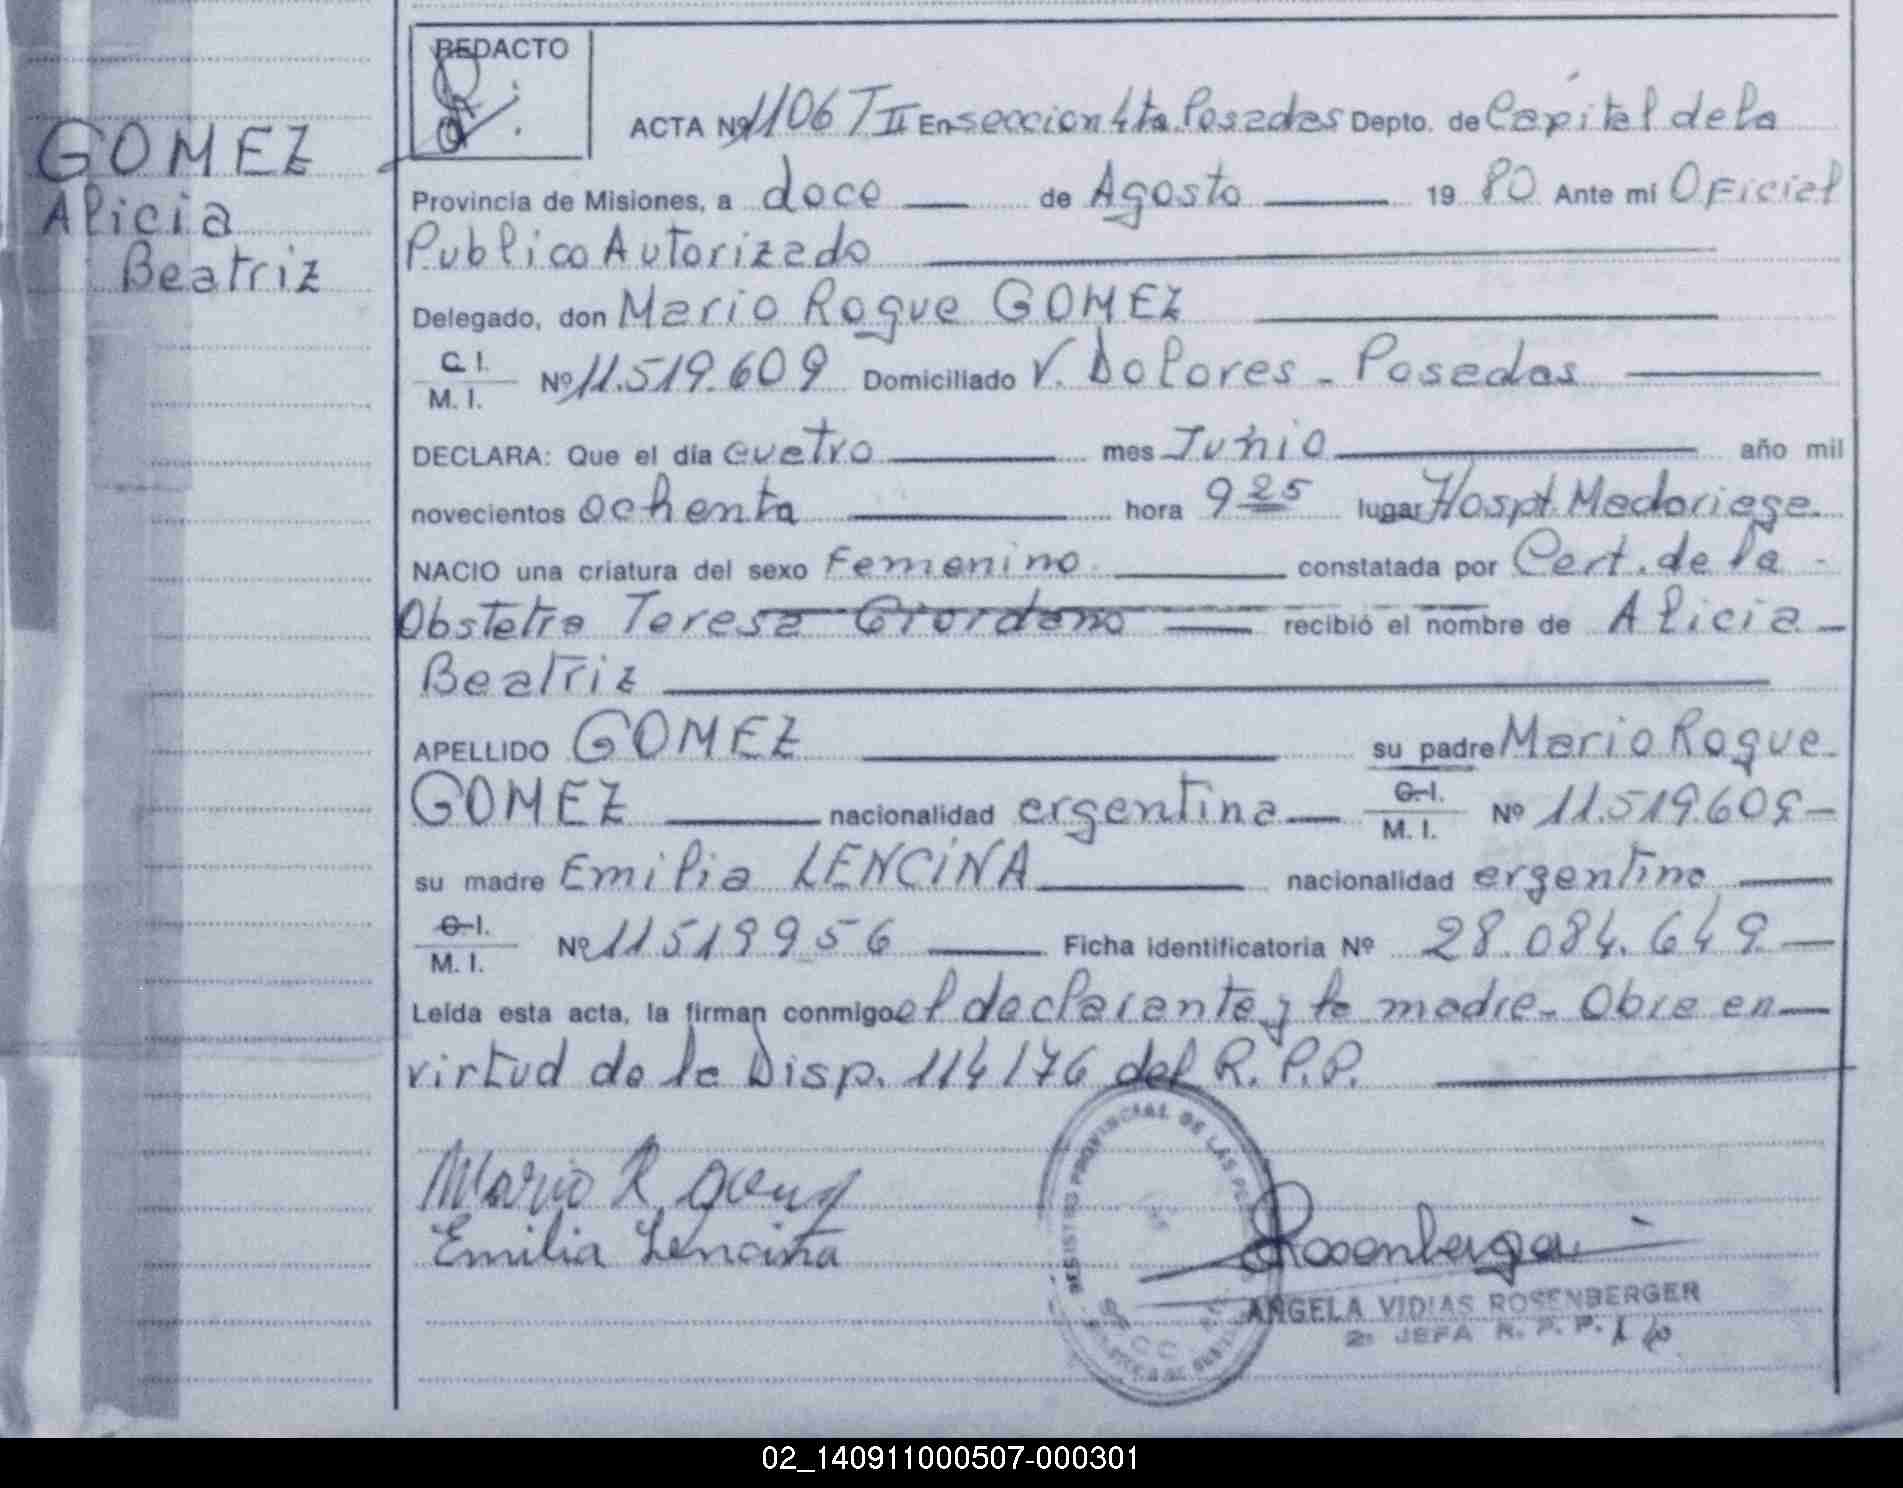 GOMEZ
Alicia
Beatriz
REDACTO
ACTA Nº 1106 T II En seccion 4ta Posadas Depto. de Capital de la
Provincia de Misiones, a doce de Agosto 1980 Ante mi Oficial
Publico Autorizado
Delegado, don Mario Roque GOMEZ
C.I.
M.I. Nº 11.519.609 Domiciliado V. Dolores - Posadas
DECLARA: Que el día cuatro mes Junio año mil
novecientos ochenta hora 9 25 lugar Hospt. Madariaga
NACIO una criatura del sexo Femenino constatada por Cert. de la
Obstetra Teresa Giordano recibió el nombre de Alicia
Beatriz
APELLIDO GOMEZ su padre Mario Roque
GOMEZ nacionalidad argentina C.I. M.I. Nº 11.519.609
su madre Emilia LENCINA nacionalidad argentina
C.I.
M.I. Nº 11519956 Ficha identificatoria Nº 28.084.649
Leída esta acta, la firman conmigo el declarante y la madre - Obra en
virtud de la Disp. 114/76 del R.P.P.
REGISTRO PROVINCIAL DE LAS
Mario R
Emilia Lencina
Rosenberger
ANGELA VIDIAS ROSENBERGER
2º JEFA R.P.P.
02_140911000507-000301